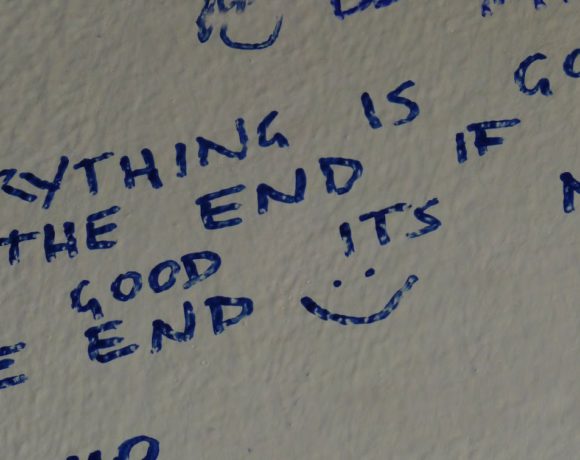 RYTHING IS GO
THE END IF
GOOD ITS N
E END